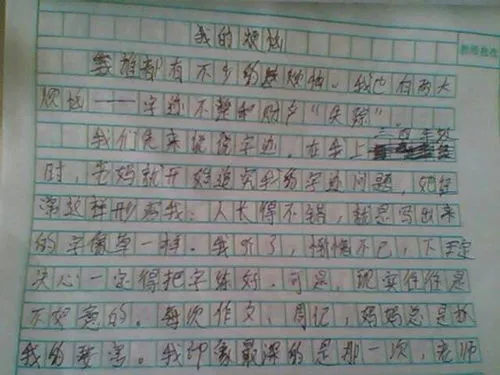 我的烦恼
谁都有不少的烦恼。我也有两大
烦恼——字迹不整和财产“失踪”
我们先来说说字迹。在我上三年级
时，老妈就开始追究我的字迹问题，她经
常这样形容我：人长得不错，就是写出来
的字像草一样。我听了，惭愧不已，下定
决心一定得把字练好。可是，现实往往是
不如意的。每次作文、周记，妈妈总是
我的。我印象最深的是那一次，老师